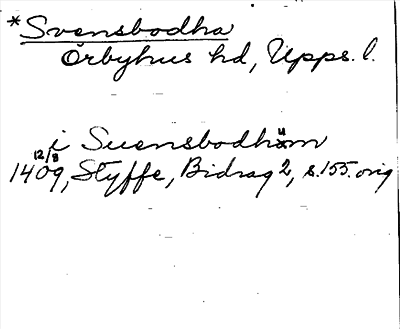 *Svensbodha
Örbyhus hd, Upps. l.
i Suensbodhum
12/8
1409, Styffe, Bidrag 2, s. 155. orig